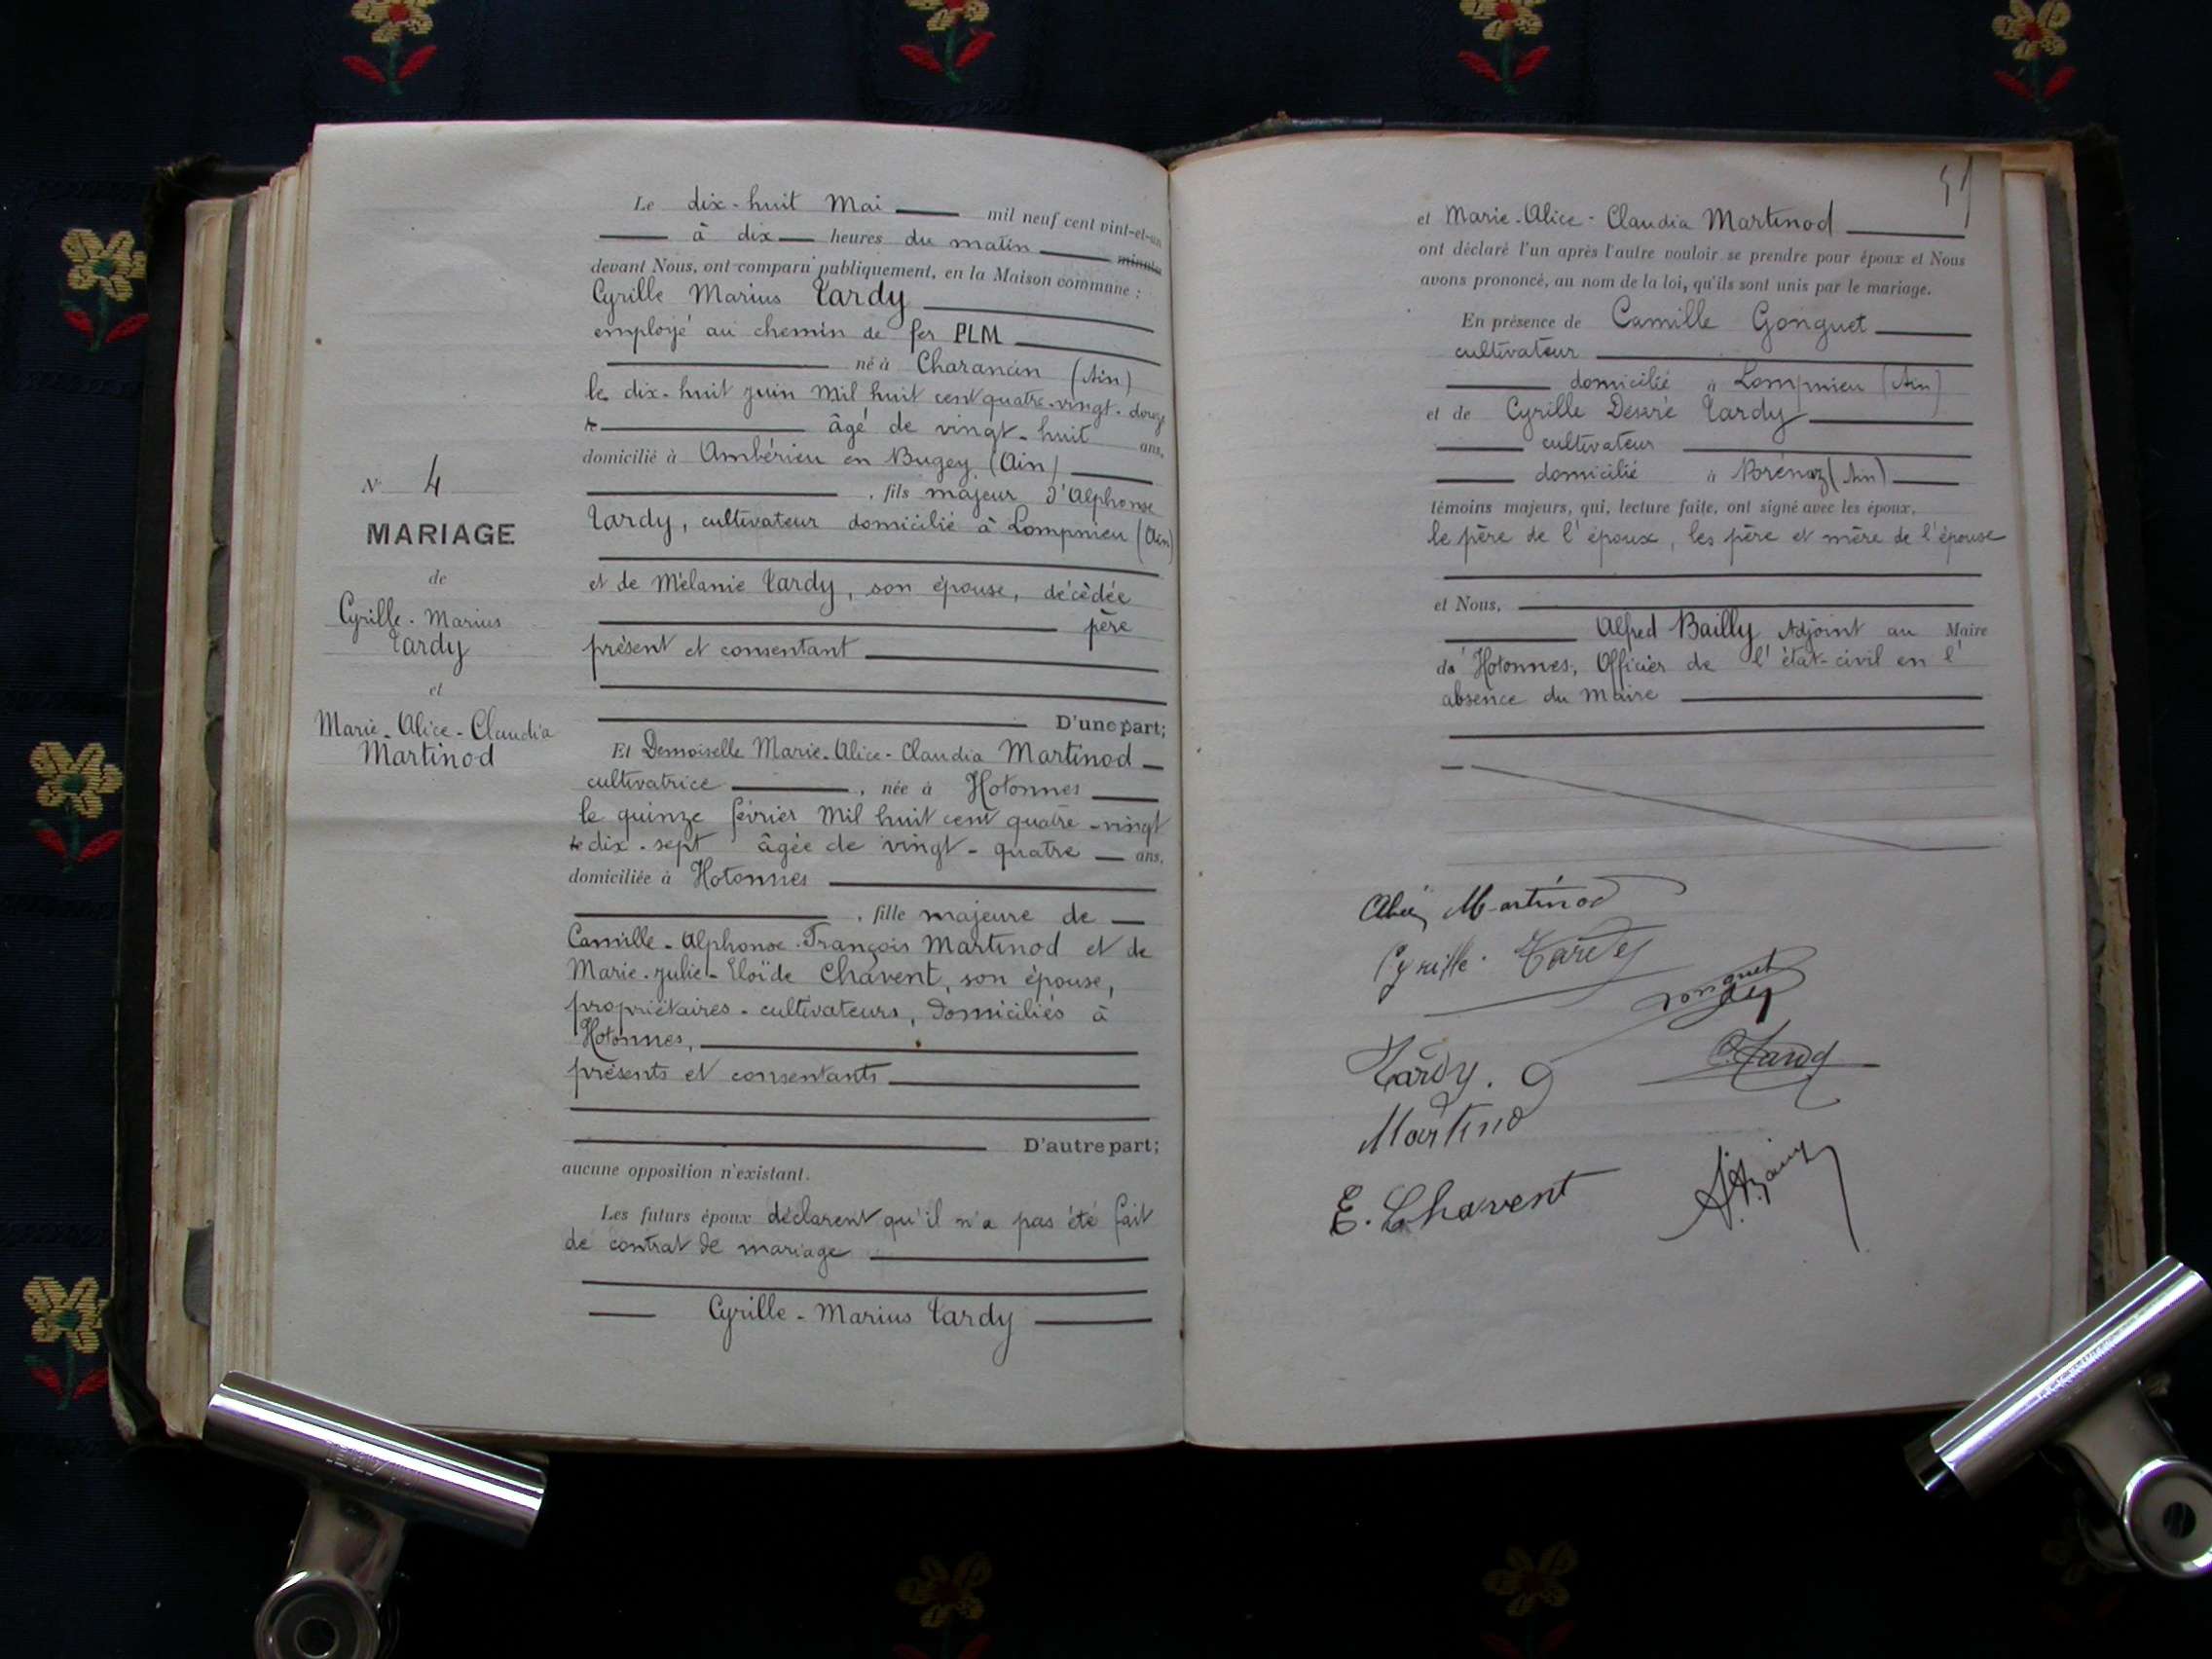 Le dix-huit Mai mil neuf cent vint-et-un
à dix heures du matin minute
devant Nous, ont comparu publiquement, en la Maison commune :
Cyrille Marius Tardy
employé au chemin de fer PLM
né à Charancin (Ain)
le dix-huit juin mil huit cent quatre-vingt-douze
âgé de vingt-huit ans,
domicilié à Ambérieu en Bugey (Ain)
, fils majeur d'Alphonse
Tardy, cultivateur domicilié à Lompnieu (Ain)
et de Mélanie Tardy, son épouse, décédée
père
présent et consentant
D'une part;
Et Demoiselle Marie-Alice-Claudia Martinod
cultivatrice , née à Hotonnes
le quinze février mil huit cent quatre-vingt
dix-sept âgée de vingt-quatre ans,
domiciliée à Hotonnes
, fille majeure de
Camille-Alphonse-François Martinod et de
Marie-Julie-Eloïde Chavent, son épouse,
propriétaires-cultivateurs, domiciliés à
Hotonnes,
présents et consentants
D'autre part;
aucune opposition n'existant.
Les futurs époux déclarent qu'il n'a pas été fait
de contrat de mariage
Cyrille-Marius Tardy
N° 4
MARIAGE
de
Cyrille-Marius
Tardy
et
Marie-Alice-Claudia
Martinod
et Marie-Alice-Claudia Martinod
ont déclaré l'un après l'autre vouloir se prendre pour époux et Nous
avons prononcé, au nom de la loi, qu'ils sont unis par le mariage.
En présence de Camille Gonguet
cultivateur
domicilié à Lompnieu (Ain)
et de Cyrille Désiré Tardy
cultivateur
domicilié à (Ain)
témoins majeurs, qui, lecture faite, ont signé avec les époux,
le père de l'époux, les père et mère de l'épouse
et Nous,
Alfred Bailly Adjoint au Maire
de Hotonnes, Officier de l'état-civil en l'
absence du maire
Alice Martinod
Cyrille Tardy
Gonguet
Tardy.
C. Tardy
Martinod
E. Chavent